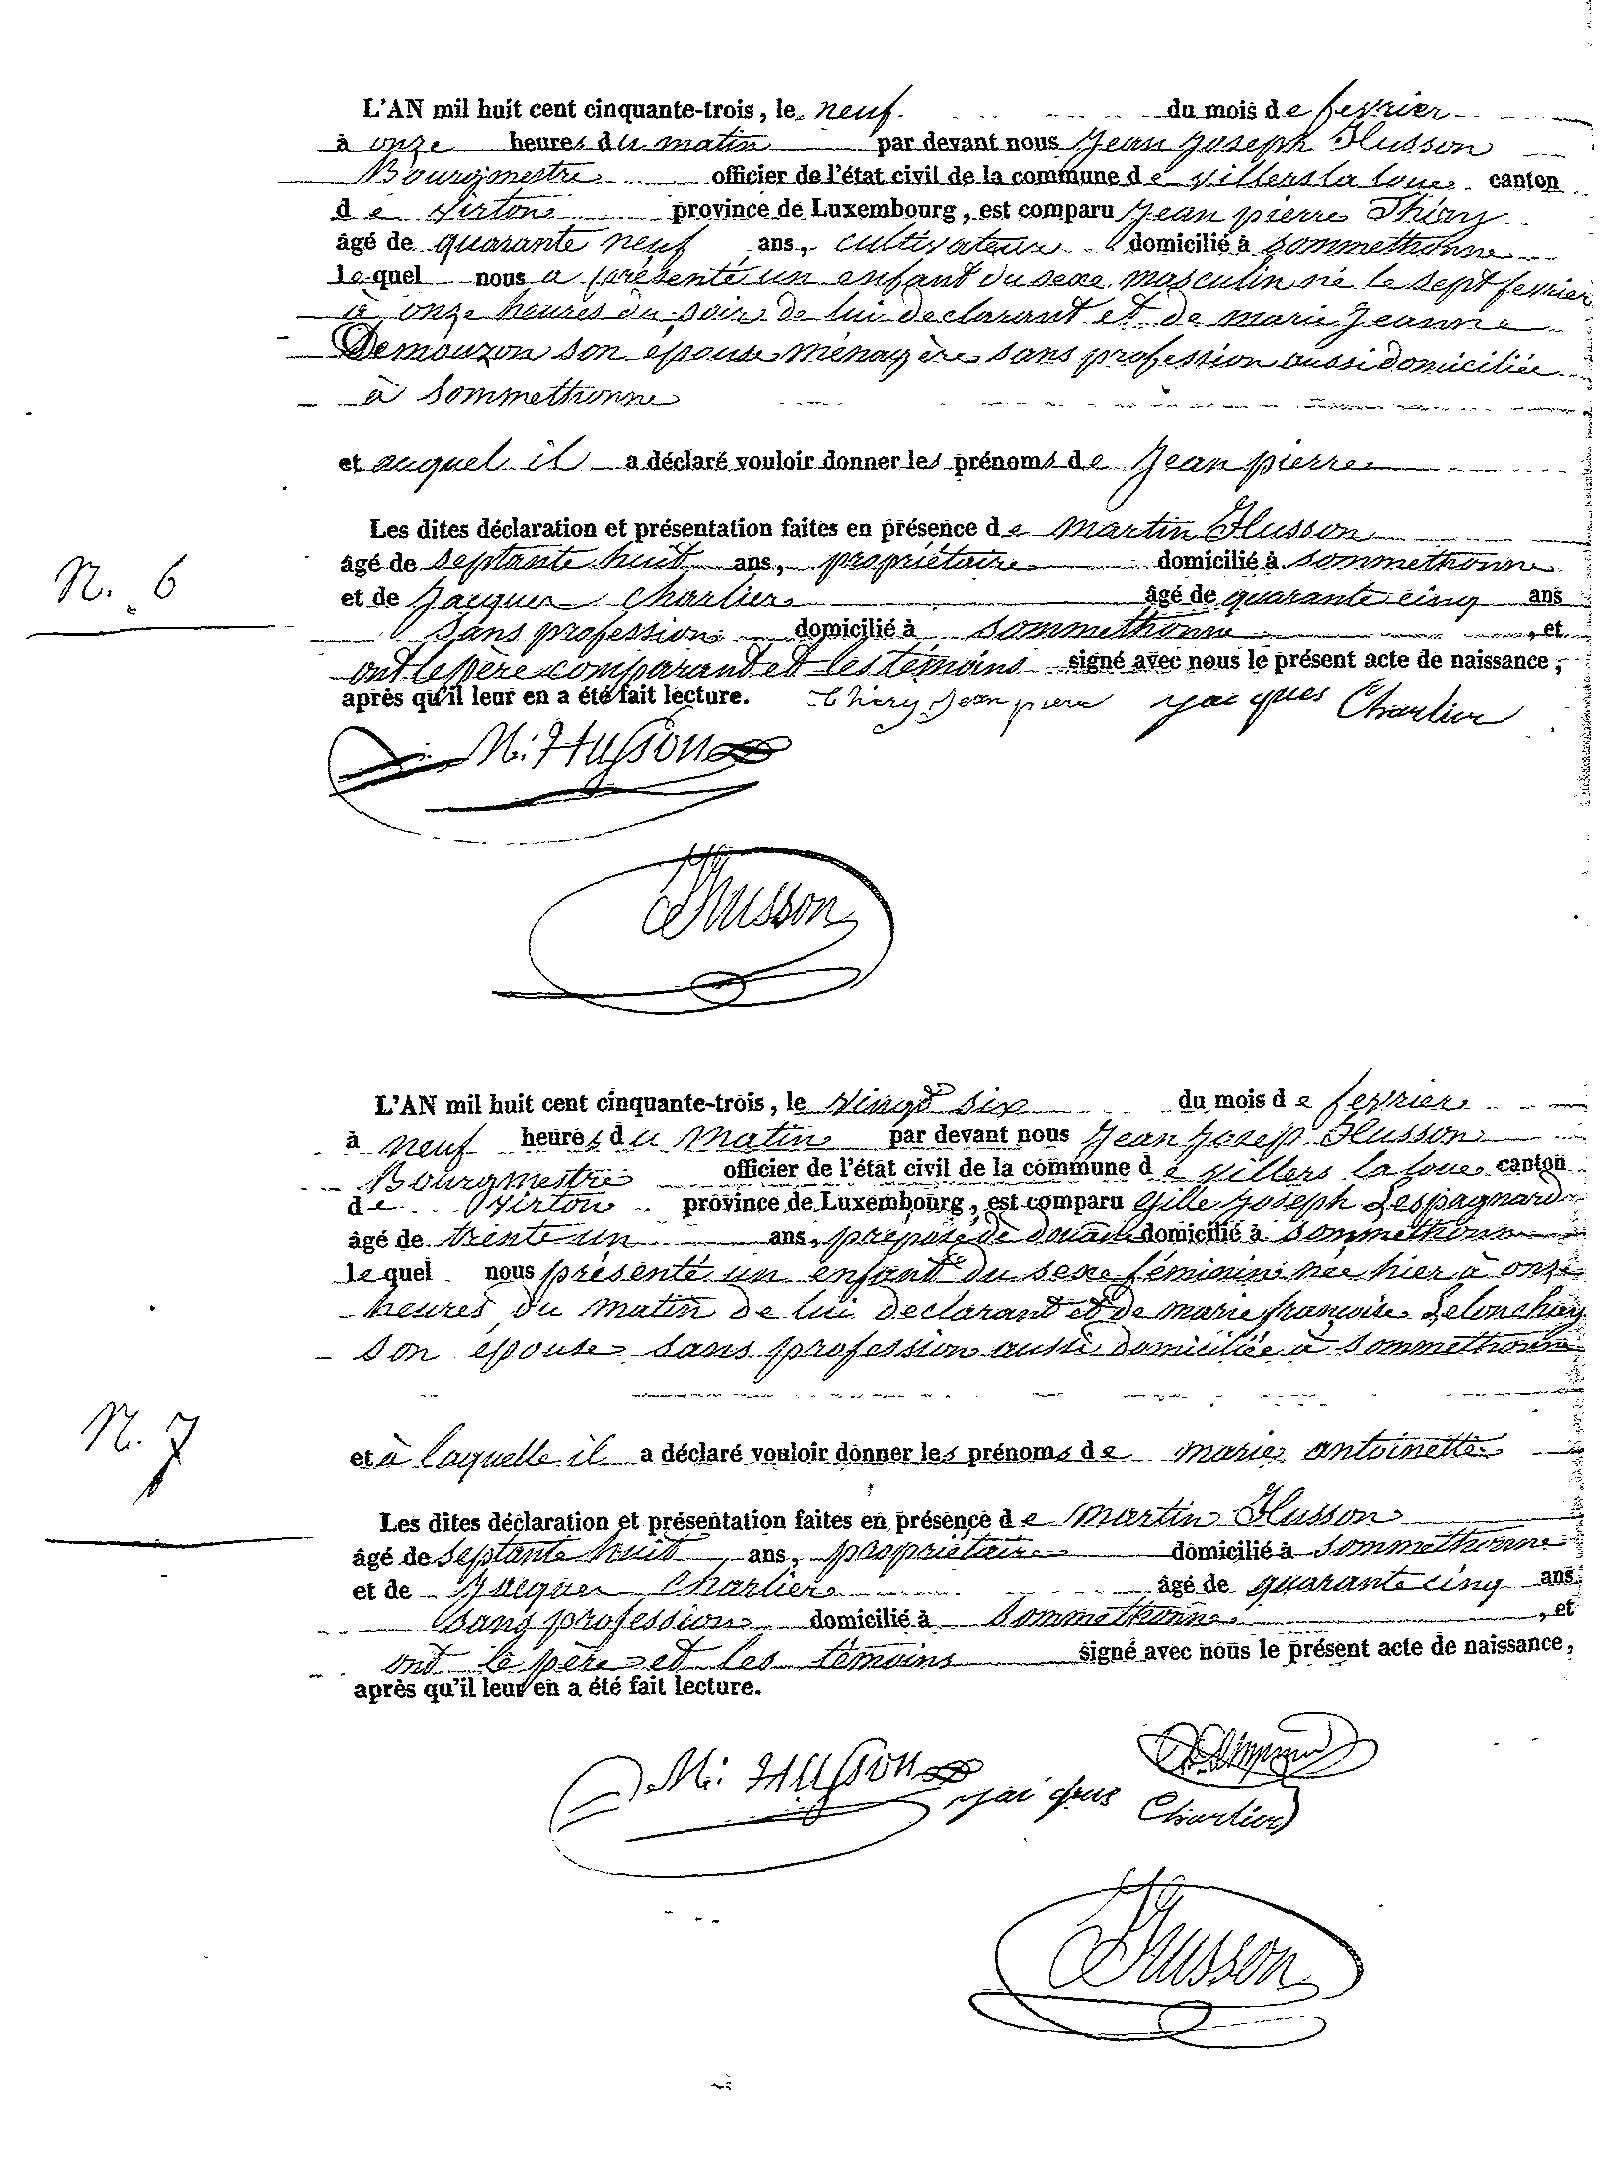 L'AN mil huit cent cinquante-trois, le neuf du mois de fevrier
à onze heures du matin par devant nous Jean Joseph Husson
Bourgmestre officier de l'état civil de la commune de villers la loue canton
de Virton province de Luxembourg, est comparu Jean pierre Thiry
âgé de quarante neuf ans, cultivateur domicilié à sommethonne
lequel nous a présenté un enfant du sexe masculin né le sept fevrier
à onze heures du soir de lui declarant et de marie Jeanne
Demouzon son épouse ménagère sans profession aussi domiciliée
à sommethonne
et auquel il a déclaré vouloir donner les prénoms de Jean pierre
Les dites déclaration et présentation faites en présence de martin Husson
N. 6
âgé de septante huit ans, propriétaire domicilié à sommethonne
et de Jacques Charlier âgé de quarante cinq ans
sans profession domicilié à sommethonne, et
ont le père comparant et les témoins signé avec nous le présent acte de naissance,
après qu'il leur en a été fait lecture. Thiry Jean pierre jacques Charlier
M: Husson
JHusson
L'AN mil huit cent cinquante-trois, le vingt six du mois de fevrier
à neuf heures du matin par devant nous Jean Josep Husson
Bourgmestre officier de l'état civil de la commune de villers la loue canton
de Virton province de Luxembourg, est comparu Gille Joseph Lespagnard
âgé de trente un ans, préposé de douane domicilié à sommethonne
lequel nous présenté un enfant du sexe féminin née hier à onze
heures du matin de lui declarant et de marie françoise Lelonchay
son épouse sans profession aussi domiciliée à sommethonne
N. 7
et à laquelle il a déclaré vouloir donner les prénoms de marie antoinette
Les dites déclaration et présentation faites en présence de martin Husson
âgé de septante huit ans, propriétaire domicilié à sommethonne
et de Jacques Charlier âgé de quarante cinq ans
sans profession domicilié à sommethonne, et
ont le père et les témoins signé avec nous le présent acte de naissance,
après qu'il leur en a été fait lecture.
M: Husson jaiques Charlier
JHusson